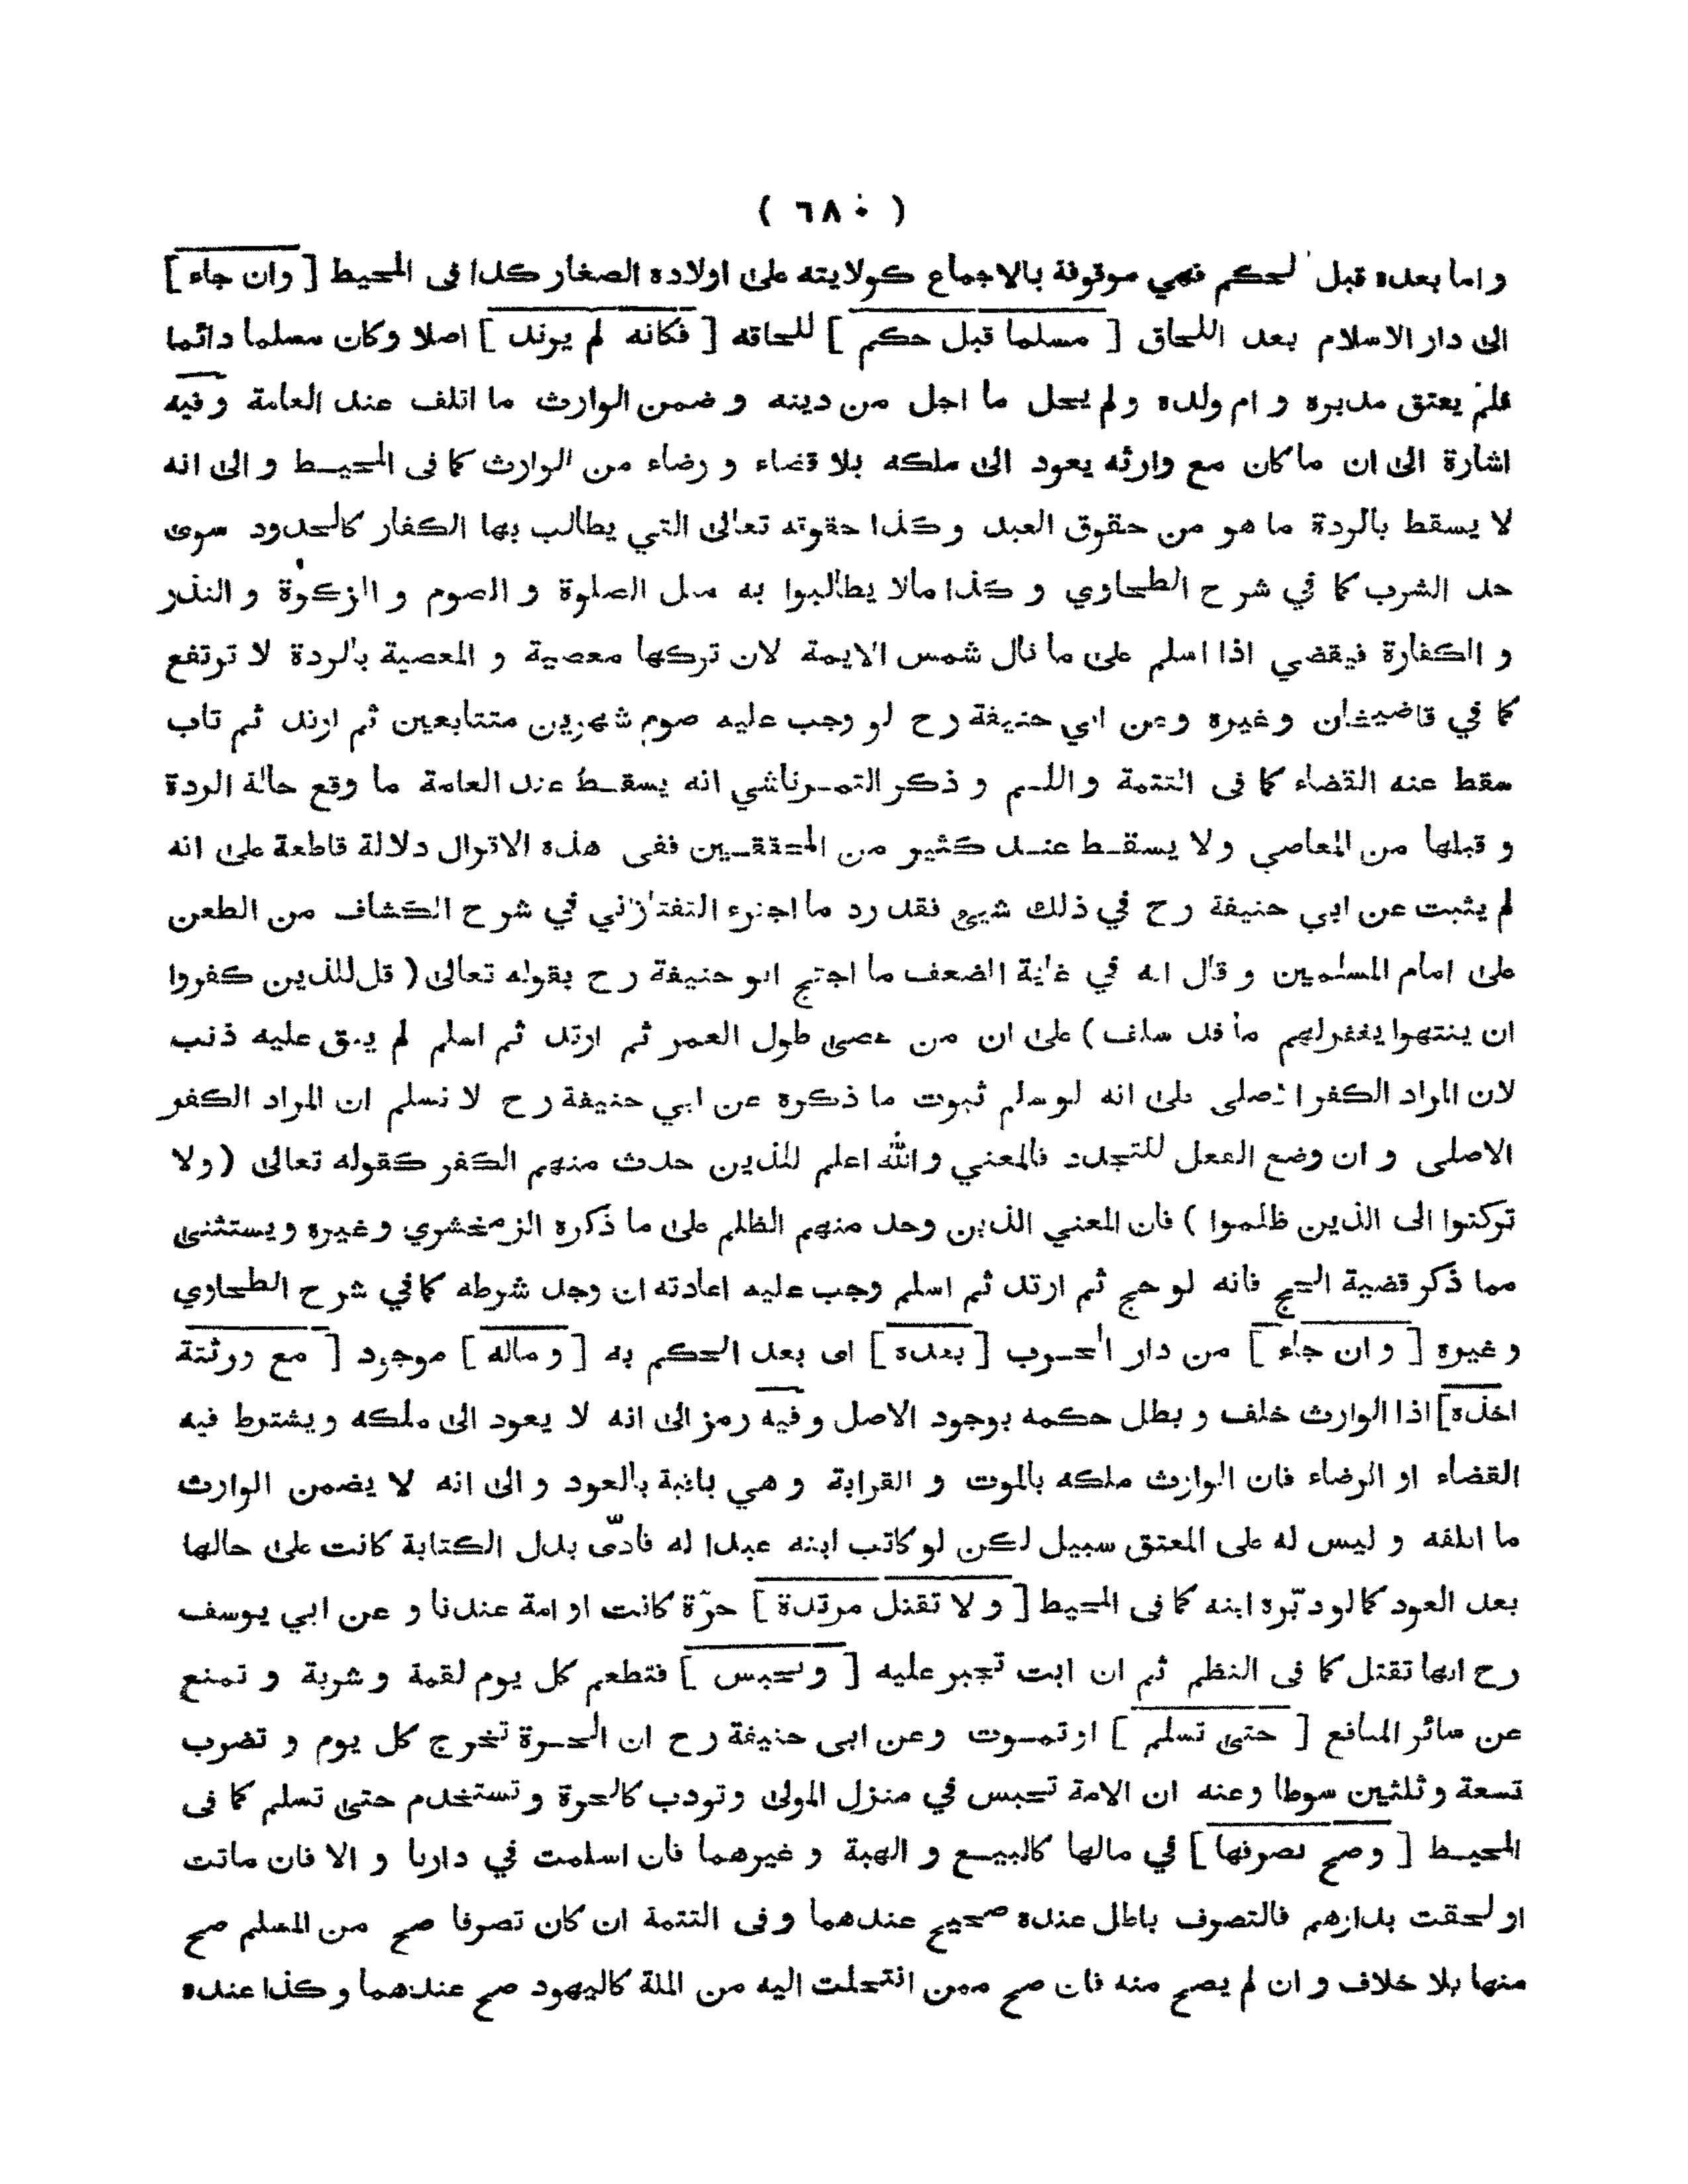 ( ٦٨٠ )
و اما بعده قبل الحكم فهي موقوفة بالاجماع كولايته على اولاده الصغار كذا فى المحيط [ وان جاء ]
الى دار الاسلام بعد اللحاق [ مسلما قبل حكم ] للحاقه [ فكانه لم يرتد ] اصلا وكان مسلما دائما
فلم يعتق مدبره و ام ولده ولم يحل ما اجل من دينه و ضمن الوارث ما اتلف عند العامة وفيه
اشارة الى ان ما كان مع وارثه يعود الى ملكه بلا قضاء و رضاء من الوارث كما فى المحيط و الى انه
لا يسقط بالردة ما هو من حقوق العبد و كذا حقوقه تعالى التي يطالب بها الكفار كالحدود سوى
حد الشرب كما في شرح الطحاوي و كذا مالا يطالبوا به مثل الصلوة و الصوم و الزكوة و النذر
و الكفارة فيقضي اذا اسلم على ما قال شمس الايمة لان تركها معصية و المعصية بالردة لا ترتفع
كما في قاضيخان وغيره وعن ابي حنيفة رح لو وجب عليه صوم شهرين متتابعين ثم ارتد ثم تاب
سقط عنه القضاء كما فى التتمة و اللـم و ذكر التمرتاشي انه يسقط عند العامة ما وقع حالة الردة
و قبلها من المعاصي ولا يسقط عند كثير من المحققين ففى هذه الاقوال دلالة قاطعة على انه
لم يثبت عن ابي حنيفة رح في ذلك شيئ فقد رد ما اجترء التفتازني في شرح الكشاف من الطعن
على امام المسلمين و قال انه في غاية الضعف ما احتج ابو حنيفة رح بقوله تعالى ( قل للذين كفروا
ان ينتهوا يغفرلهم ما قد سلف ) على ان من عصى طول العمر ثم ارتد ثم اسلم لم يبق عليه ذنب
لان المراد الكفر الاصلى على انه لو سلم ثبوت ما ذكره عن ابي حنيفة رح لا نسلم ان المراد الكفر
الاصلى و ان وضع الفعل للتجدد فالمعني والله اعلم للذين حدث منهم الكفر كقوله تعالى ( ولا
تركنوا الى الذين ظلموا ) فان المعني الذين وجد منهم الظلم على ما ذكره الزمخشري وغيره ويستثنى
مما ذكر قضية الحج فانه لو حج ثم ارتد ثم اسلم وجب عليه اعادته ان وجد شرطه كما في شرح الطحاوي
و غيره [ و ان جاء ] من دار الحرب [ بعده ] اى بعد الحكم به [ و ماله ] موجود [ مع ورثتة
اخذه ] اذا الوارث خلف و بطل حكمه بوجود الاصل وفيه رمز الى انه لا يعود الى ملكه ويشترط فيه
القضاء او الرضاء فان الوارث ملكه بالموت و القرابة و هي باقية بالعود و الى انه لا يضمن الوارث
ما اتلفه و ليس له على المعتق سبيل لكن لو كاتب ابنه عبدا له فادّى بدل الكتابة كانت على حالها
بعد العود كما لو دبّره ابنه كما فى المحيط [ و لا تقتل مرتدة ] حرّة كانت او امة عندنا و عن ابي يوسف
رح انها تقتل كما فى النظم ثم ان ابت تجبر عليه [ وتحبس ] فتطعم كل يوم لقمة و شربة و تمنع
عن سائر المنافع [ حتى تسلم ] او تموت وعن ابى حنيفة رح ان الحرة تخرج كل يوم و تضرب
تسعة و ثلثين سوطا وعنه ان الامة تحبس في منزل المولى وتودب كالحرة و تستخدم حتى تسلم كما فى
المحيط [ وصح تصرفها ] في مالها كالبيع و الهبة و غيرهما فان اسلمت في دارنا و الا فان ماتت
او لحقت بدارهم فالتصرف باطل عنده صحيح عندهما وفى التتمة ان كان تصرفا صح من المسلم صح
منها بلا خلاف و ان لم يصح منه فان صح ممن انتحلت اليه من الملة كاليهود صح عندهما و كذا عنده